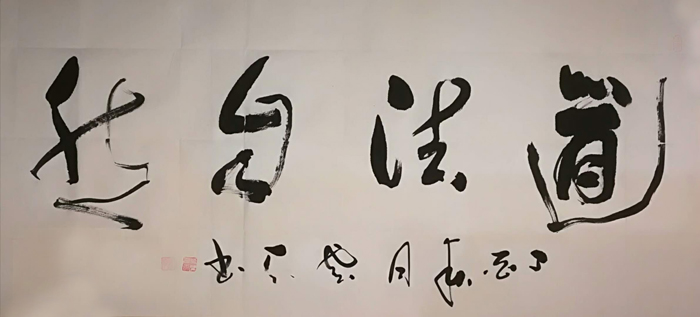 道法自然
丁酉春月书